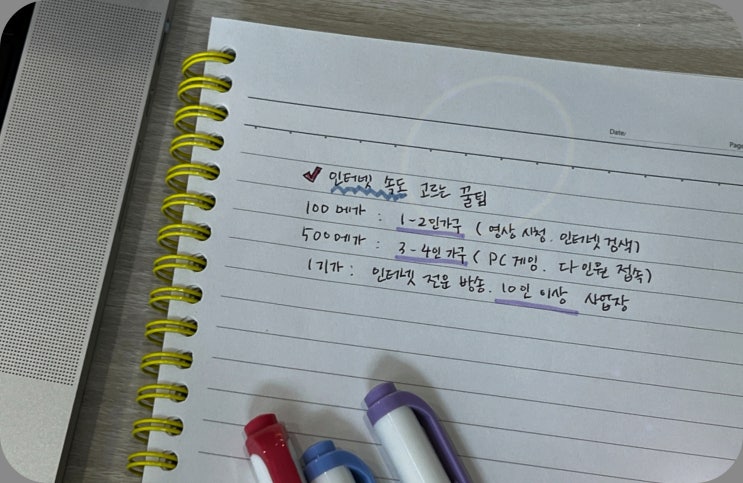 Date/
Page
✔ 인터넷 속도 고르는 꿀팁
100 메가 : 1-2인가구 ( 영상 시청. 인터넷 검색)
500메가 : 3-4인 가구 ( PC 게임. 다인원 접속)
1기가 : 인터넷 전문 방송. 10인 이상 사업장